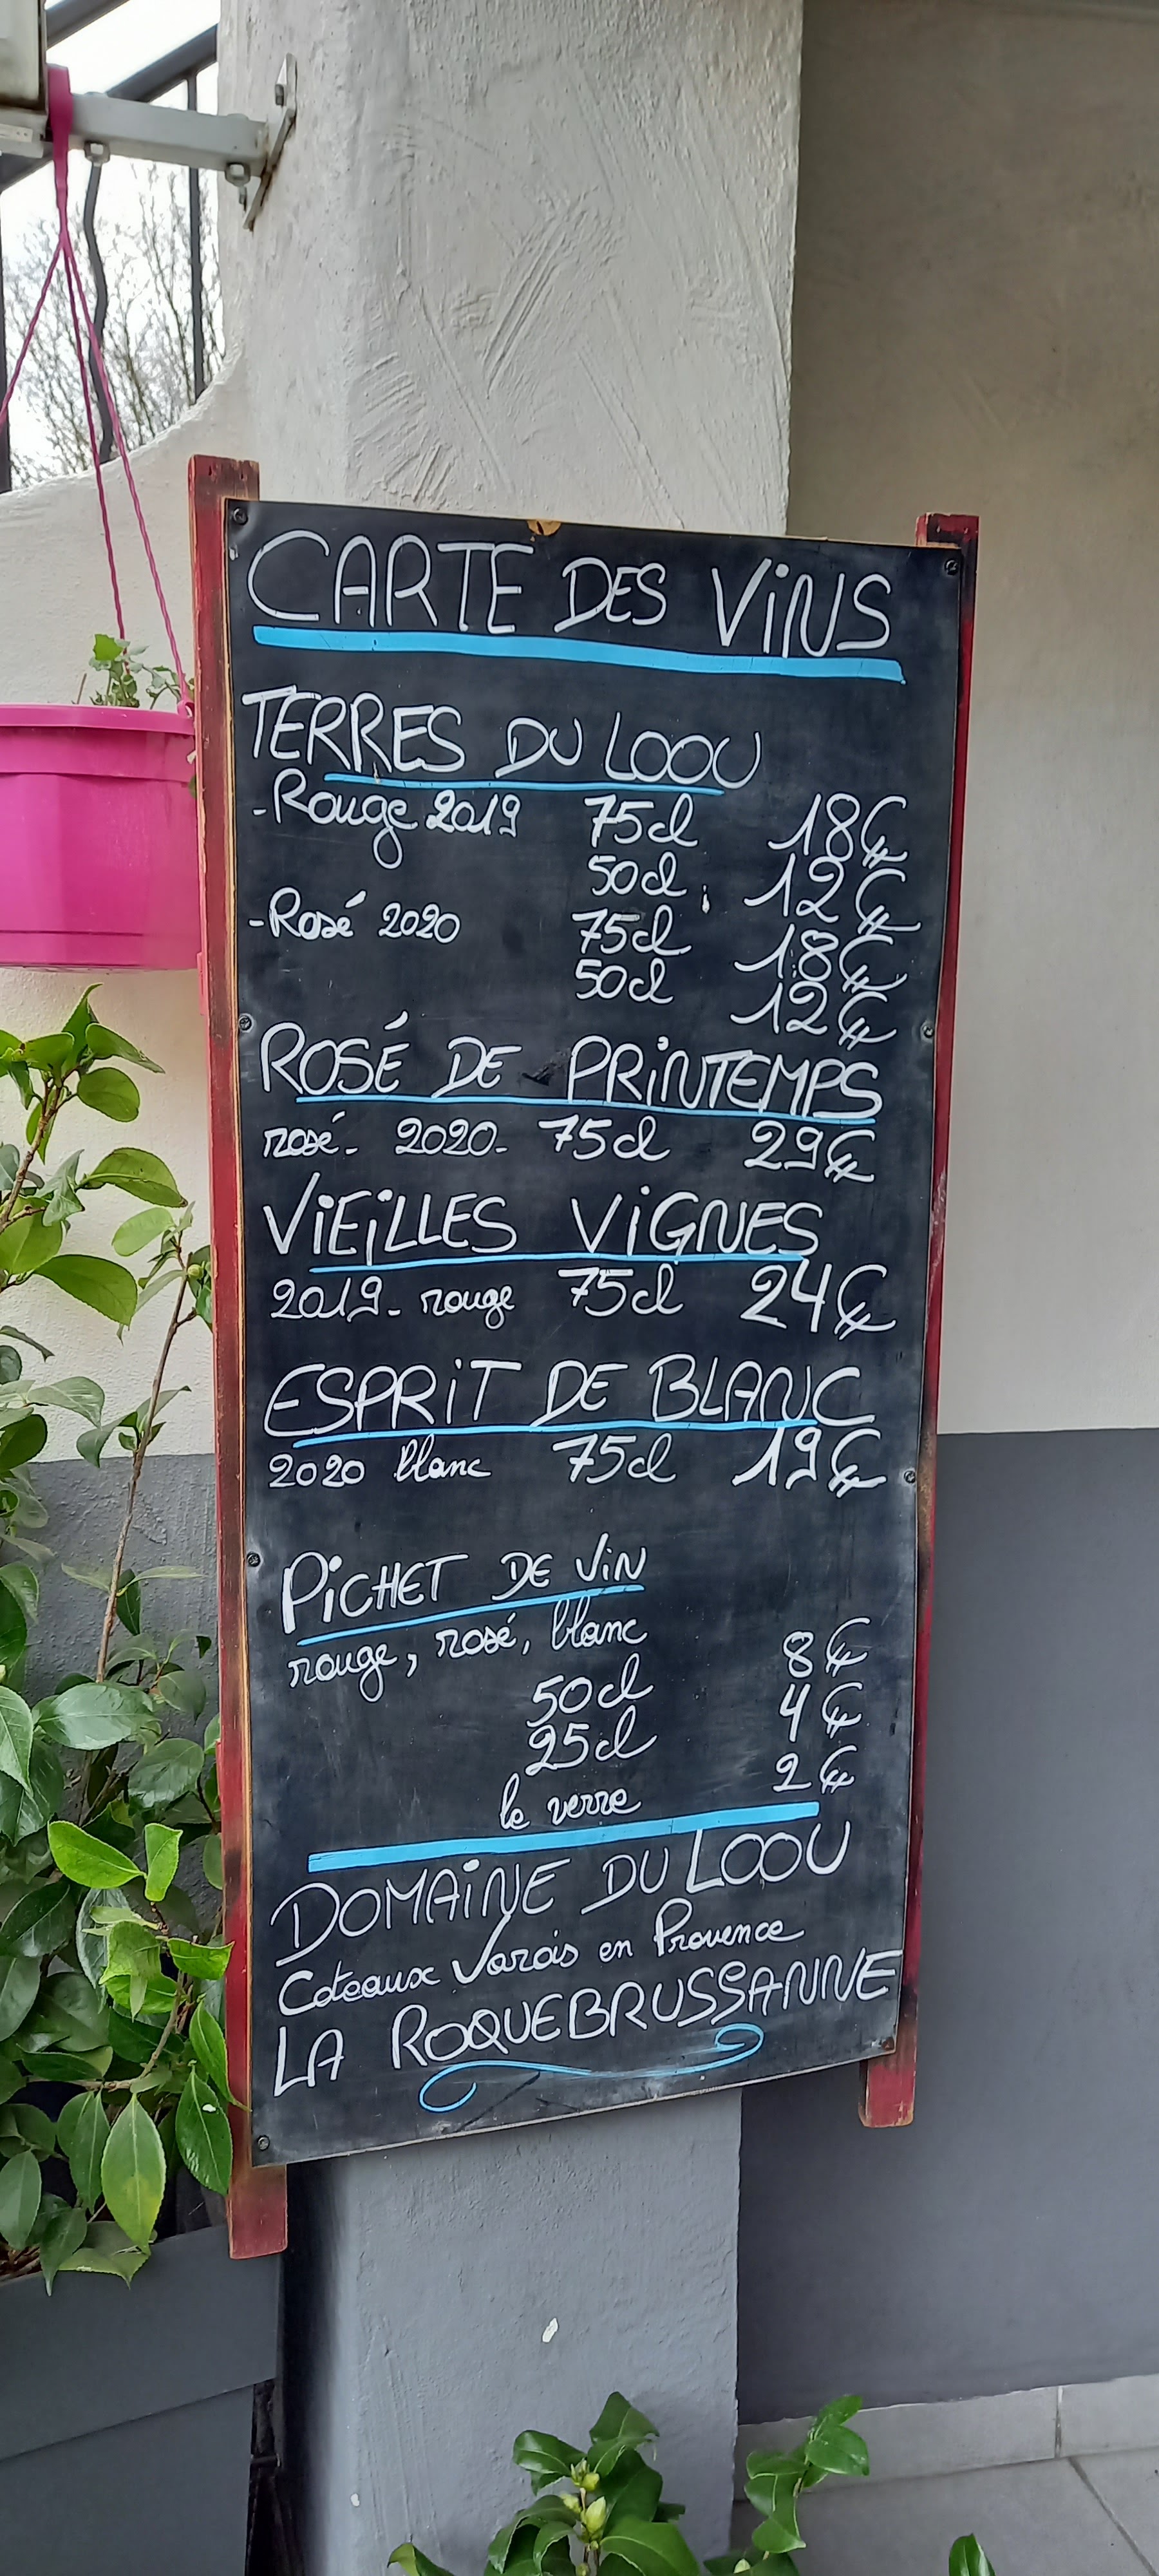 CARTE DES ViNS
TERRES DU LOOU
-Rouge 2019 75cl 18€
50cl 12€
-Rosé 2020 75cl 18€
50cl 12€
ROSÉ DE PRiNTEMPS
rosé- 2020- 75cl 29€
ViEiLLES ViGNES
2019- rouge 75cl 24€
ESPRiT DE BLANC
2020 blanc 75cl 19€
PiCHET DE ViN
rouge, rosé, blanc
50cl 8€
25cl 4€
le verre 2€
DOMAiNE DU LOOU
Coteaux Varois en Provence
LA ROQUEBRUSSANNE